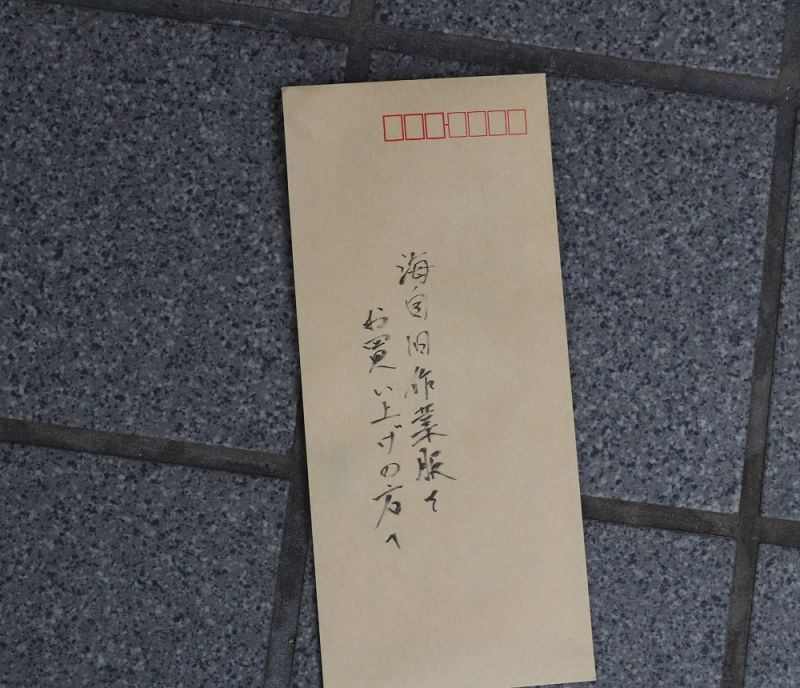 海自旧作業服を
お買い上げの方へ